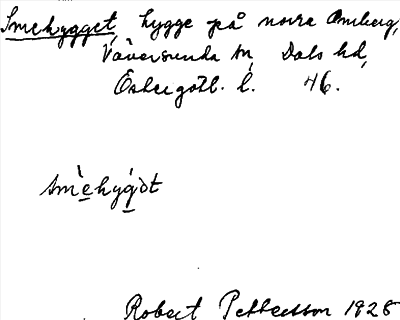 Smehygget, hygge på norra Omberg,
Väversunda sn, Dals hd,
Östergötl. l. 46.
smèhyg̀ǝt
Robert Pettersson 1928